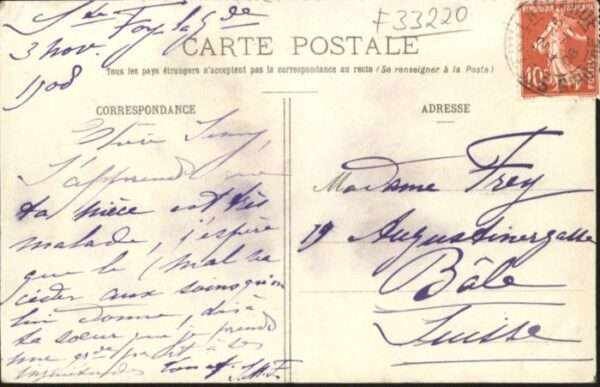 Ste
Foy la Gde
3 Nov.
1908
F 33220
CARTE POSTALE
Tous les pays étrangers n'acceptent pas la correspondance au recto (Se renseigner à la Poste)
CORRESPONDANCE
ADRESSE
J'apprends que
ta nièce est très
malade, j'espère
que le mal va
céder aux soins qu'on
lui donne, dis à
ta sœur que je prends
une gde part à ses
inquiétudes
Madame Frey
19 Augustinergasse
Bâle
Suisse
10